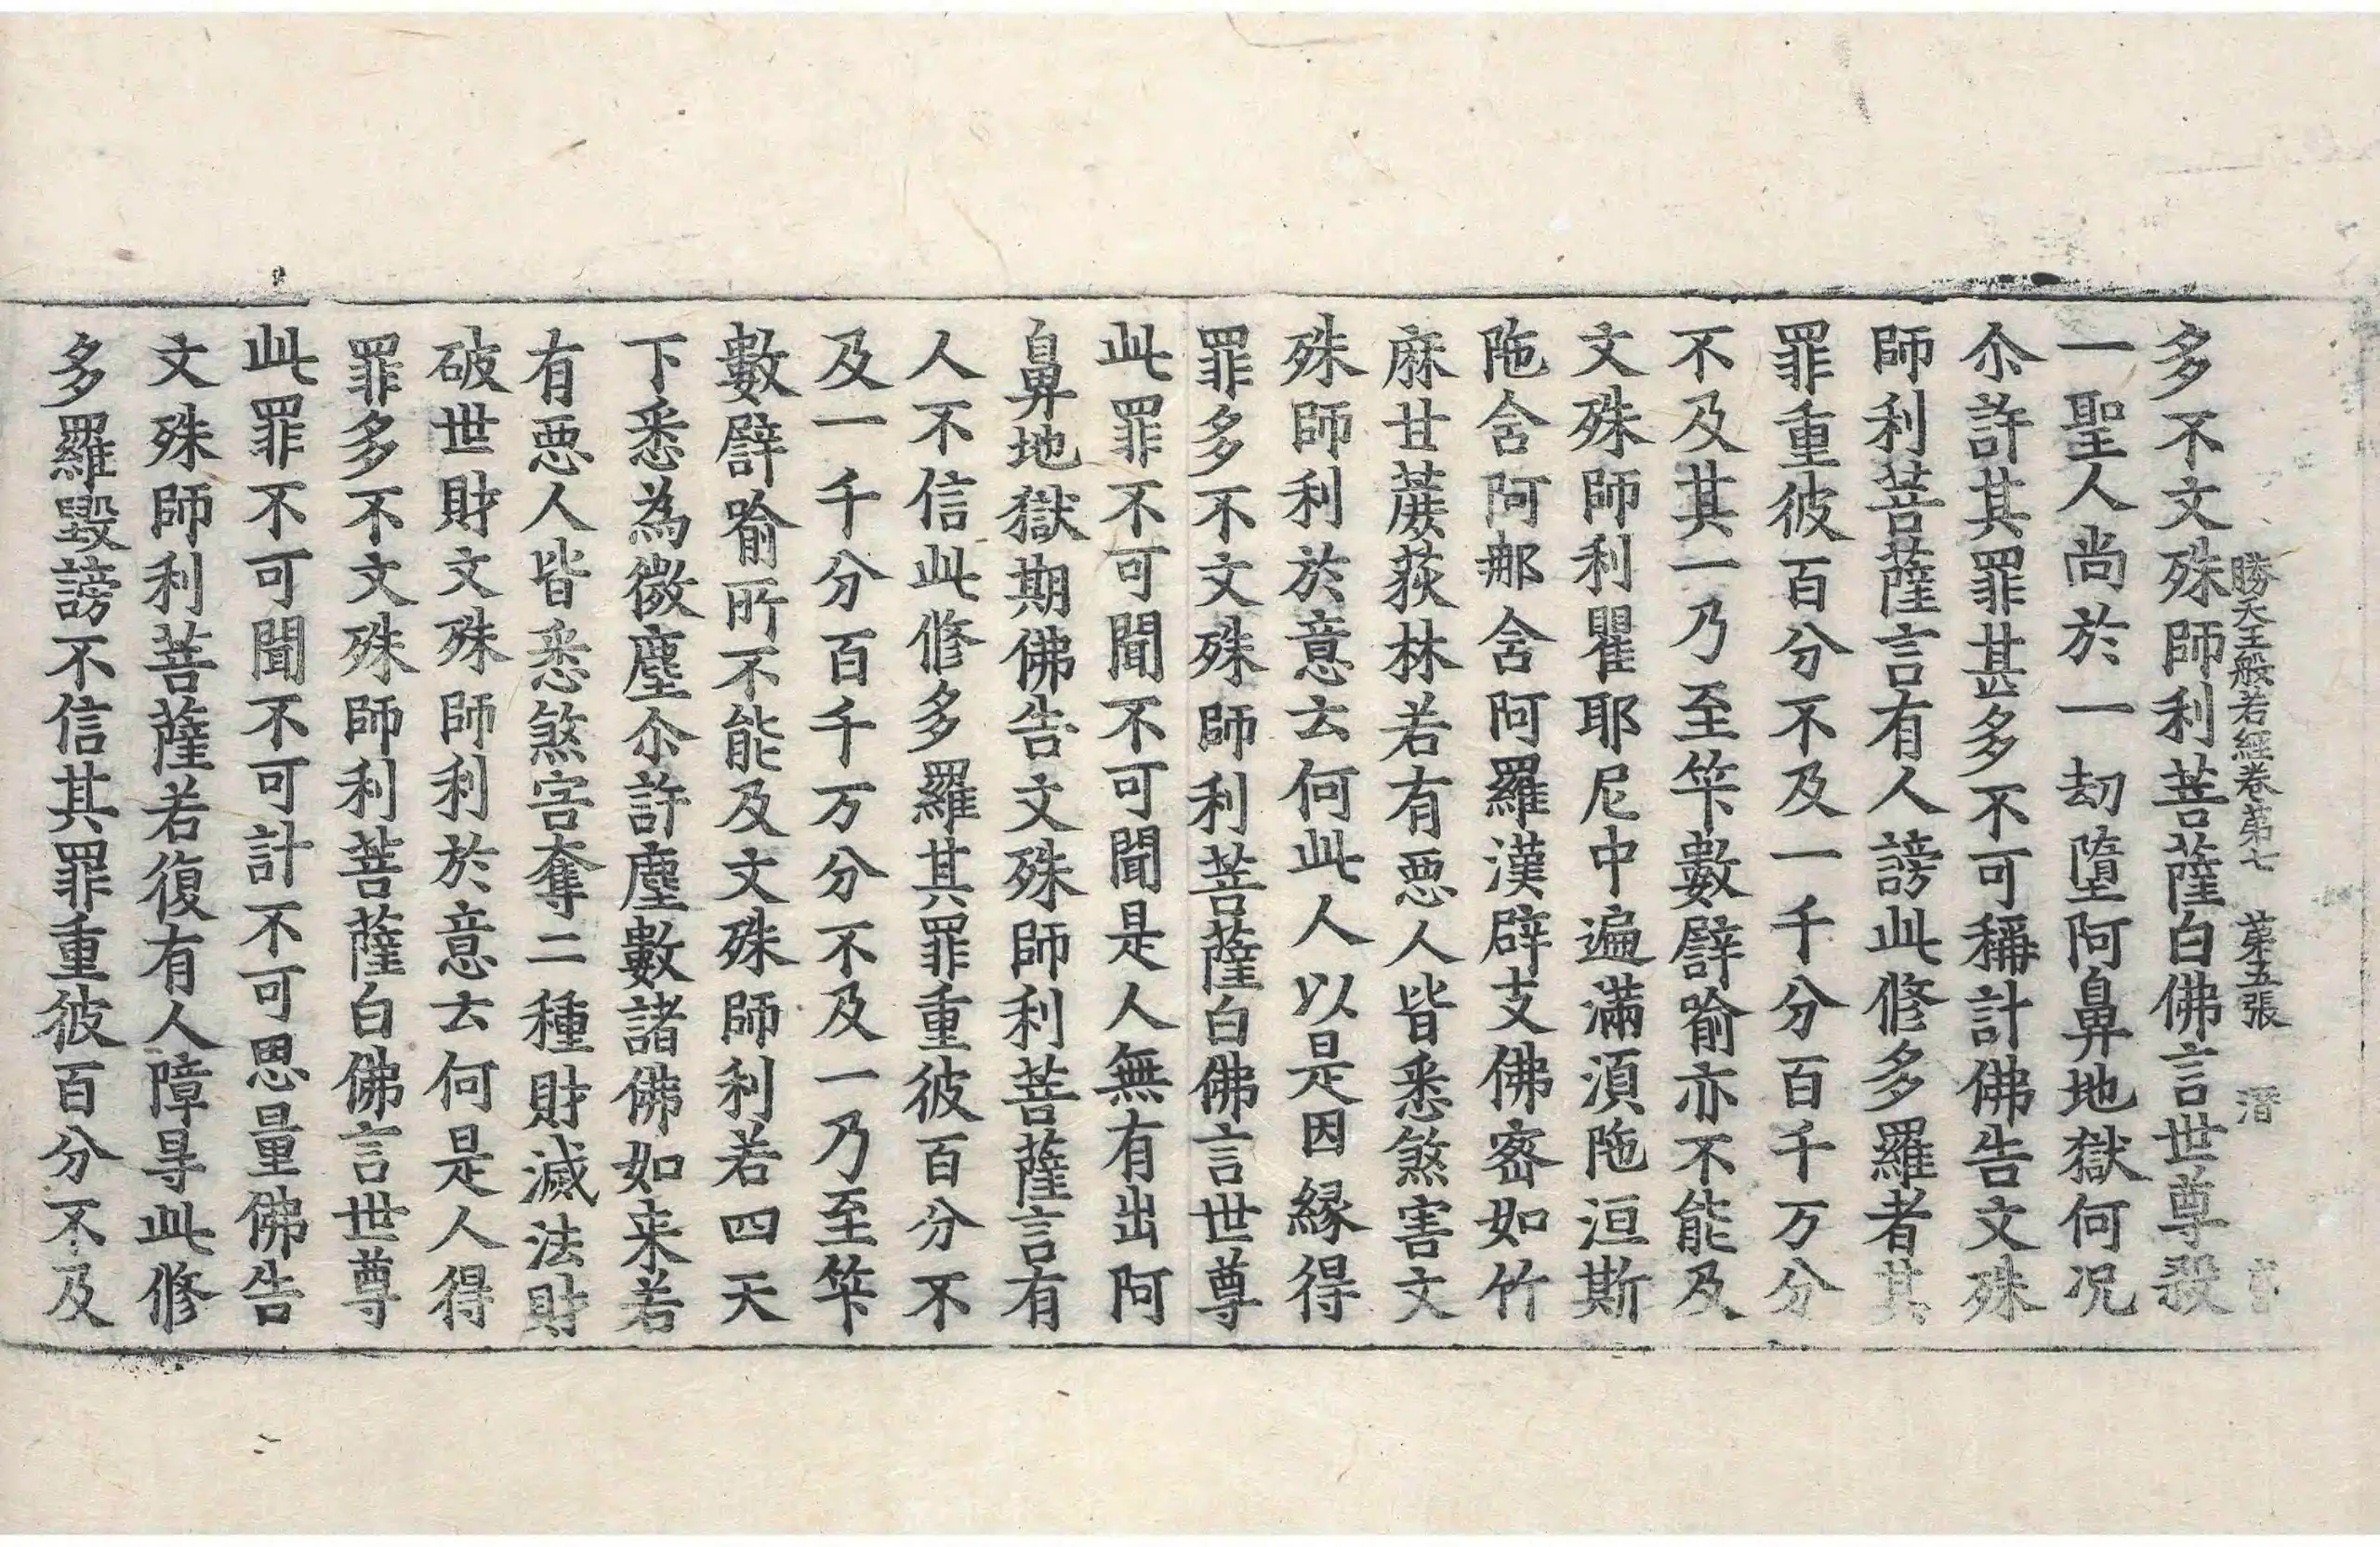 勝天王般若經卷第七 苐五張 潛
多不文殊師利菩薩白佛言世尊殺
一聖人尚於一刧墮阿鼻地獄何况
尒許其罪甚多不可稱計佛告文殊
師利菩薩言有人謗此修多羅者其
罪重彼百分不及一千分百千万分
不及其一乃至筭數譬喻亦不能及
文殊師利瞿耶尼中遍滿湏陁洹斯
陁含阿那含阿羅漢辟支佛宻如竹
麻甘蔗荻林若有惡人皆悉煞害文
殊師利於意云何此人以是因縁得
罪多不文殊師利菩薩白佛言世尊
此罪不可聞不可聞是人無有出阿
鼻地獄期佛告文殊師利菩薩言有
人不信此修多羅其罪重彼百分不
及一千分百千万分不及一乃至筭
數譬喻所不能及文殊師利若四天
下悉為微塵尒許塵數諸佛如来若
有惡人皆悉煞害奪二種財滅法財
破世財文殊師利於意云何是人得
罪多不文殊師利菩薩白佛言世尊
此罪不可聞不可計不可思量佛告
文殊師利菩薩若復有人障㝵此修
多羅毀謗不信其罪重彼百分不及